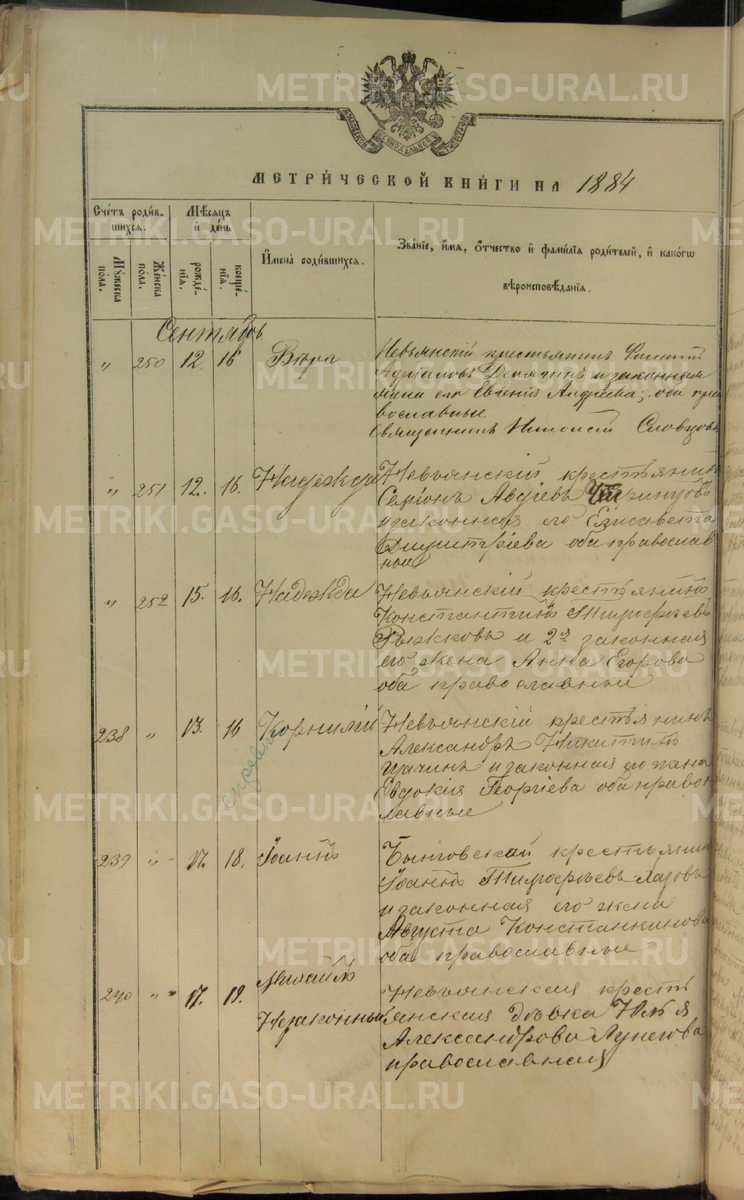 METRIKI.GASO-URAL.RU
МЕТРИЧЕСКОЙ КНИГИ НА 1884
Счетъ родив-
шихся.
Мѣсяцъ
и день
Имена родившихся.
Званіе, имя, отчество и фамилія родителей, и какого
вѣроисповѣданія.
Мужеска
пола.
Женска
пола.
рожде-
нія.
креще-
нія.
Сентябрь
„ 250 12. 16 Вѣра
Невьянскій крестьянинъ
и законная
жена его Евгенія Андреева; оба пра
вославные.
Священникъ Словцовъ
„ 251 12. 16. Надежда
Невьянскій крестьянинъ
Авдіевъ
и законная его Елисавета
Димитріева оба православ
ные
„ 252 15. 16. Надежда
Невьянскій крестьянинъ
Константинъ Тимофеевъ
Рыжковъ и 2я законная
его жена Анна Егорова
оба православные
238 „ 13. 16 Корнилій
Невьянскій крестьянинъ
Александръ Никитинъ
и законная его жена
Евдокія Георгіева оба правос
лавные
239 „ 17. 18. Іоаннъ
Быньговской крестьянинъ
Іоаннъ Тимофеевъ
и законная его жена
Августа Константинова
оба православные
240 „ 17. 19. Михаилъ
Незаконный
Невьянская кресть
янская дѣвка
Александрова
православная